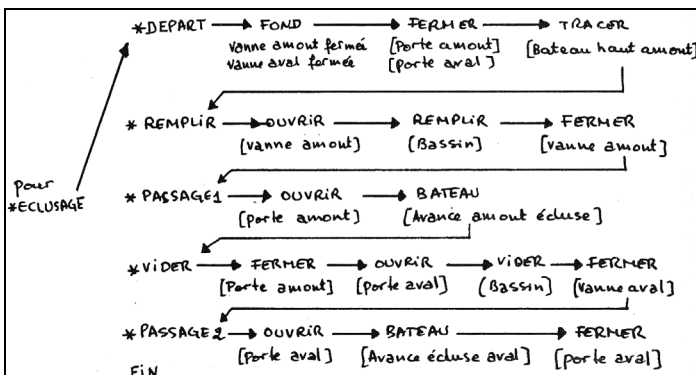 *DEPART FOND FERMER TRACER
vanne amont fermée [Porte amont] [Bateau haut amont]
vanne aval fermée [Porte aval]
*REMPLIR OUVRIR REMPLIR FERMER
[vanne amont] [Bassin] [vanne amont]
pour
*ECLUSAGE
*PASSAGE1 OUVRIR BATEAU
[Porte amont] [Avance amont écluse]
*VIDER FERMER OUVRIR VIDER FERMER
[Porte amont] [Porte aval] (Bassin] [Vanne aval]
*PASSAGE2 OUVRIR BATEAU FERMER
[Porte aval] [Avance écluse aval] [porte aval]
FIN